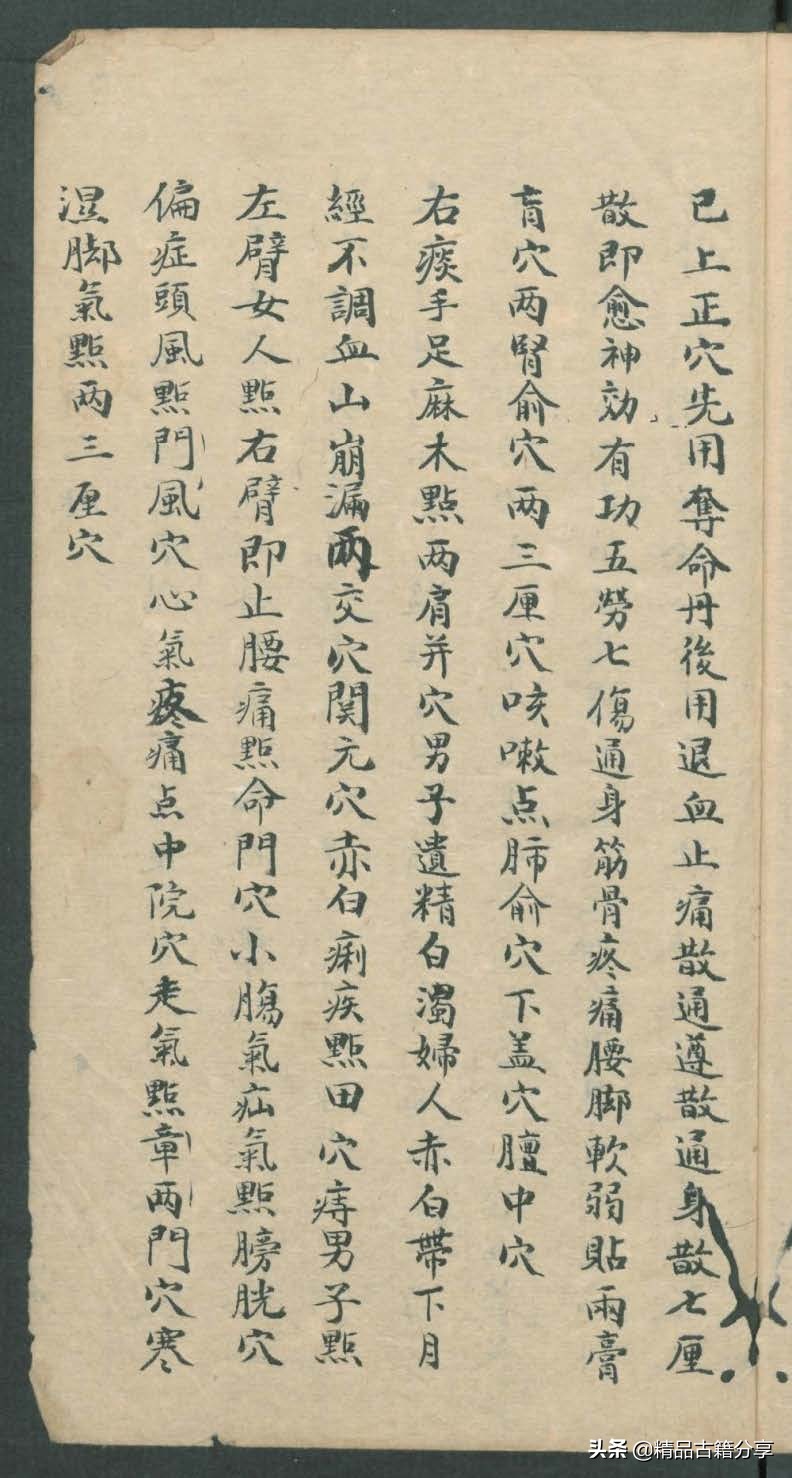 已上正穴先用奪命丹後用退血止痛散通遵散通身散七厘
散即愈神効有功五勞七傷通身筋骨疼痛腰脚軟弱貼兩膏
肓穴两腎俞穴两三厘穴咳嗽点肺俞穴下盖穴膻中穴
右痰手足麻木點两肩井穴男子遺精白濁婦人赤白帶下月
經不調血山崩漏兩交穴関元穴赤白痢疾點田穴痔男子點
左臂女人點右臂即止腰痛點命門穴小膓氣疝氣點膀胱穴
偏症頭風點門風穴心氣疼痛点中院穴走氣點章两門穴寒
濕脚氣點两三厘穴
头条 @精品古籍分享